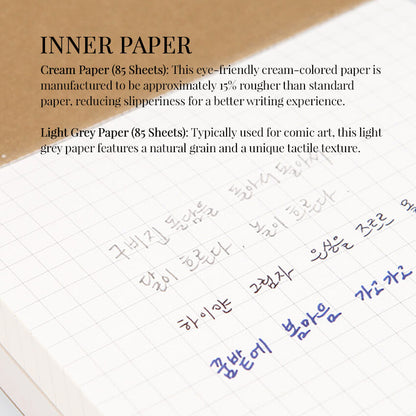 INNER PAPER
Cream Paper (85 Sheets): This eye-friendly cream-colored paper is
manufactured to be approximately 15% rougher than standard
paper, reducing slipperiness for a better writing experience.
Light Grey Paper (85 Sheets): Typically used for comic art, this light
grey paper features a natural grain and a unique tactile texture.
구비진 돌담을 돌아서 돌아서
달이 흐른다. 놀이 흐른다.
하이얀 그림자 은실을 즈르르
꿈밭에 봄마음 가고가고